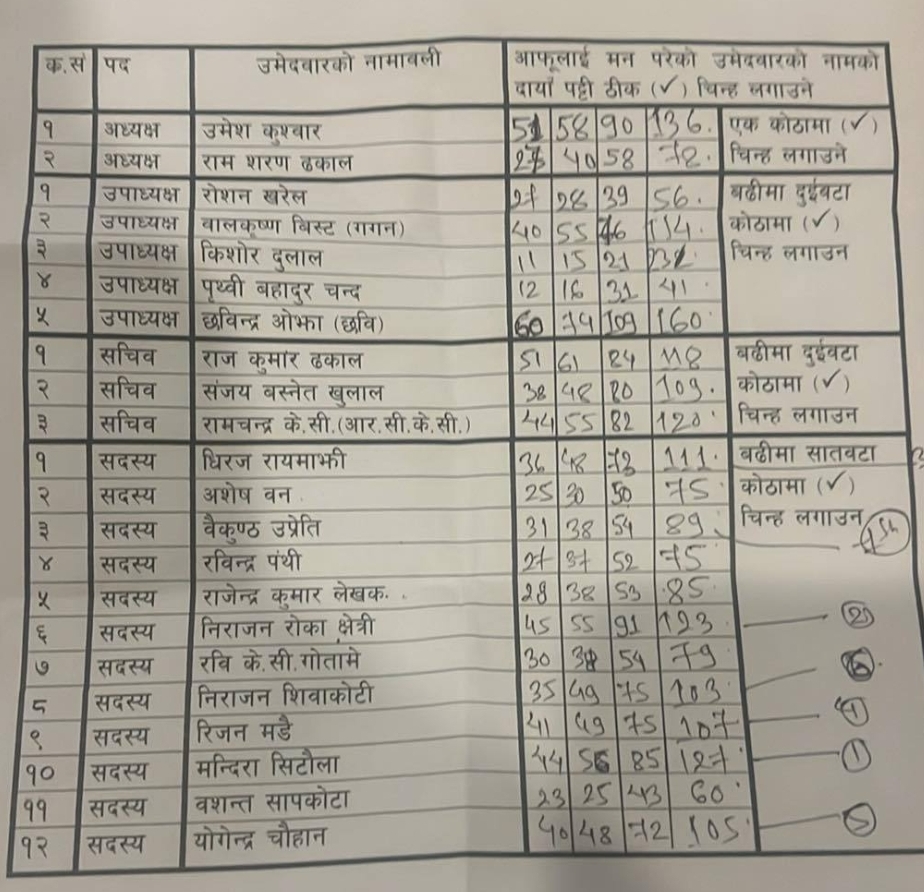 क.सं पद उमेदवारको नामावली आफूलाई मन परेको उमेदवारको नामको
दायाँ पट्टी ठीक (✓) चिन्ह लगाउने
१ अध्यक्ष उमेश कुश्वार 51 58 90 136. एक कोठामा (✓)
२ अध्यक्ष राम शरण ढकाल 40 58 78. चिन्ह लगाउने
१ उपाध्यक्ष रोशन खरेल 27 28 39 56. बढीमा दुईवटा
२ उपाध्यक्ष वालकृष्ण विस्ट (गगन) 40 55 76 114. कोठामा (✓)
३ उपाध्यक्ष किशोर दुलाल 11 15 21 चिन्ह लगाउन
४ उपाध्यक्ष पृथ्वी बहादुर चन्द 12 16 31 41
५ उपाध्यक्ष छविन्द्र ओझा (छवि) 60 74 109 160
१ सचिव राज कुमार ढकाल 51 61 84 118 बढीमा दुईवटा
२ सचिव संजय वस्नेत खुलाल 38 48 80 109. कोठामा (✓)
३ सचिव रामचन्द्र के.सी.(आर.सी.के.सी.) 44 55 82 120 चिन्ह लगाउन
१ सदस्य धिरज रायमाझी 36 48 73 111. बढीमा सातवटा
२ सदस्य अशेष वन 25 30 50 75 कोठामा (✓)
३ सदस्य वैकुण्ठ उप्रेति 31 38 54 89 चिन्ह लगाउन
४ सदस्य रविन्द्र पंथी 27 37 52 75
५ सदस्य राजेन्द्र कुमार लेखक 28 38 53 85
६ सदस्य निराजन रोका क्षेत्री 45 55 91 123 2
७ सदस्य रवि के.सी.गोतामे 30 54 79
८ सदस्य निराजन शिवाकोटी 35 49 75 103
९ सदस्य रिजन मडै 41 49 75 107
१० सदस्य मन्दिरा सिटौला 44 56 85 127 1
११ सदस्य वशन्त सापकोटा 23 25 43 60
१२ सदस्य योगेन्द्र चौहान 40 48 72 105 5